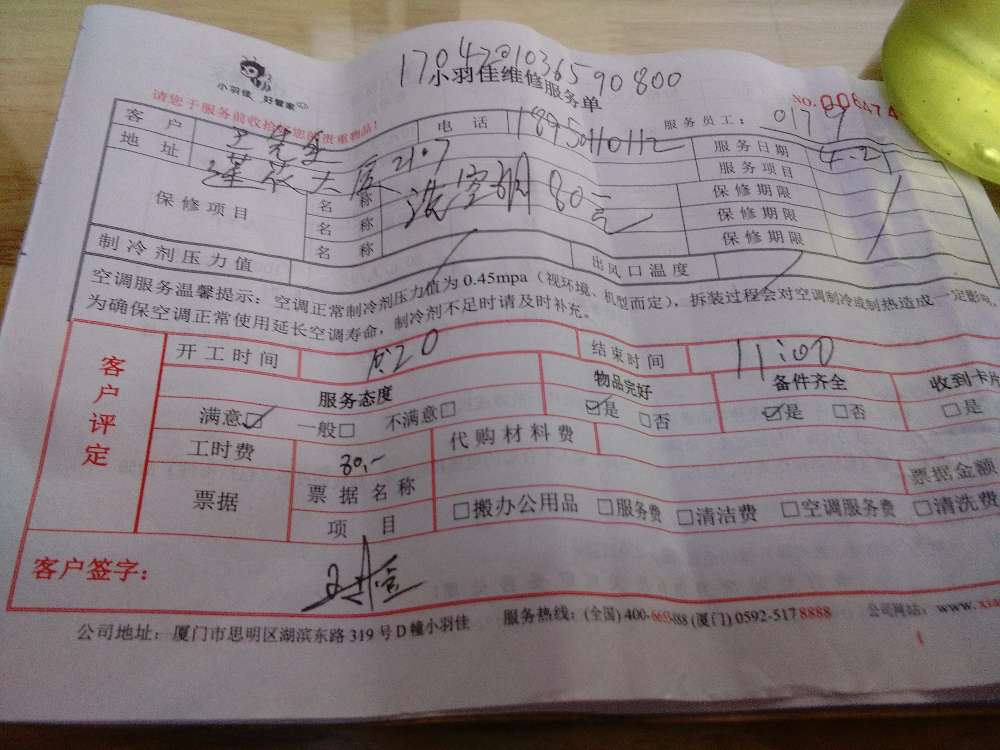 170420103659080​0
小羽佳 好管家
小羽佳维修服务单
请您于服务前收拾好您的贵重物品!
服务员工: 0179
客户 电话 18950110112 服务日期 4.27
地址 莲花大厦2107 服务项目
保修项目 名称 洗空调80元 保修期限
名称 保修期限
名称 保修期限
制冷剂压力值 出风口温度
空调服务温馨提示:空调正常制冷剂压力值为0.45mpa(视环境、机型而定),拆装过程会对空调制冷或制热造成一定影响,
为确保空调正常使用延长空调寿命,制冷剂不足时请及时补充。
客户评定
开工时间 结束时间 11:00
服务态度 物品完好 备件齐全 收到卡
满意☑ 一般□ 不满意□ ☑是 □否 ☑是 □否 □是
工时费 80,- 代购材料费
票据 票据名称 票据金额
项目 □搬办公用品 □服务费 □清洁费 □空调服务费 □清洗费
客户签字:
公司地址:厦门市思明区湖滨东路319号D幢小羽佳 服务热线:(全国)400-6655-888 (厦门)0592-5178888 公司网站:www.